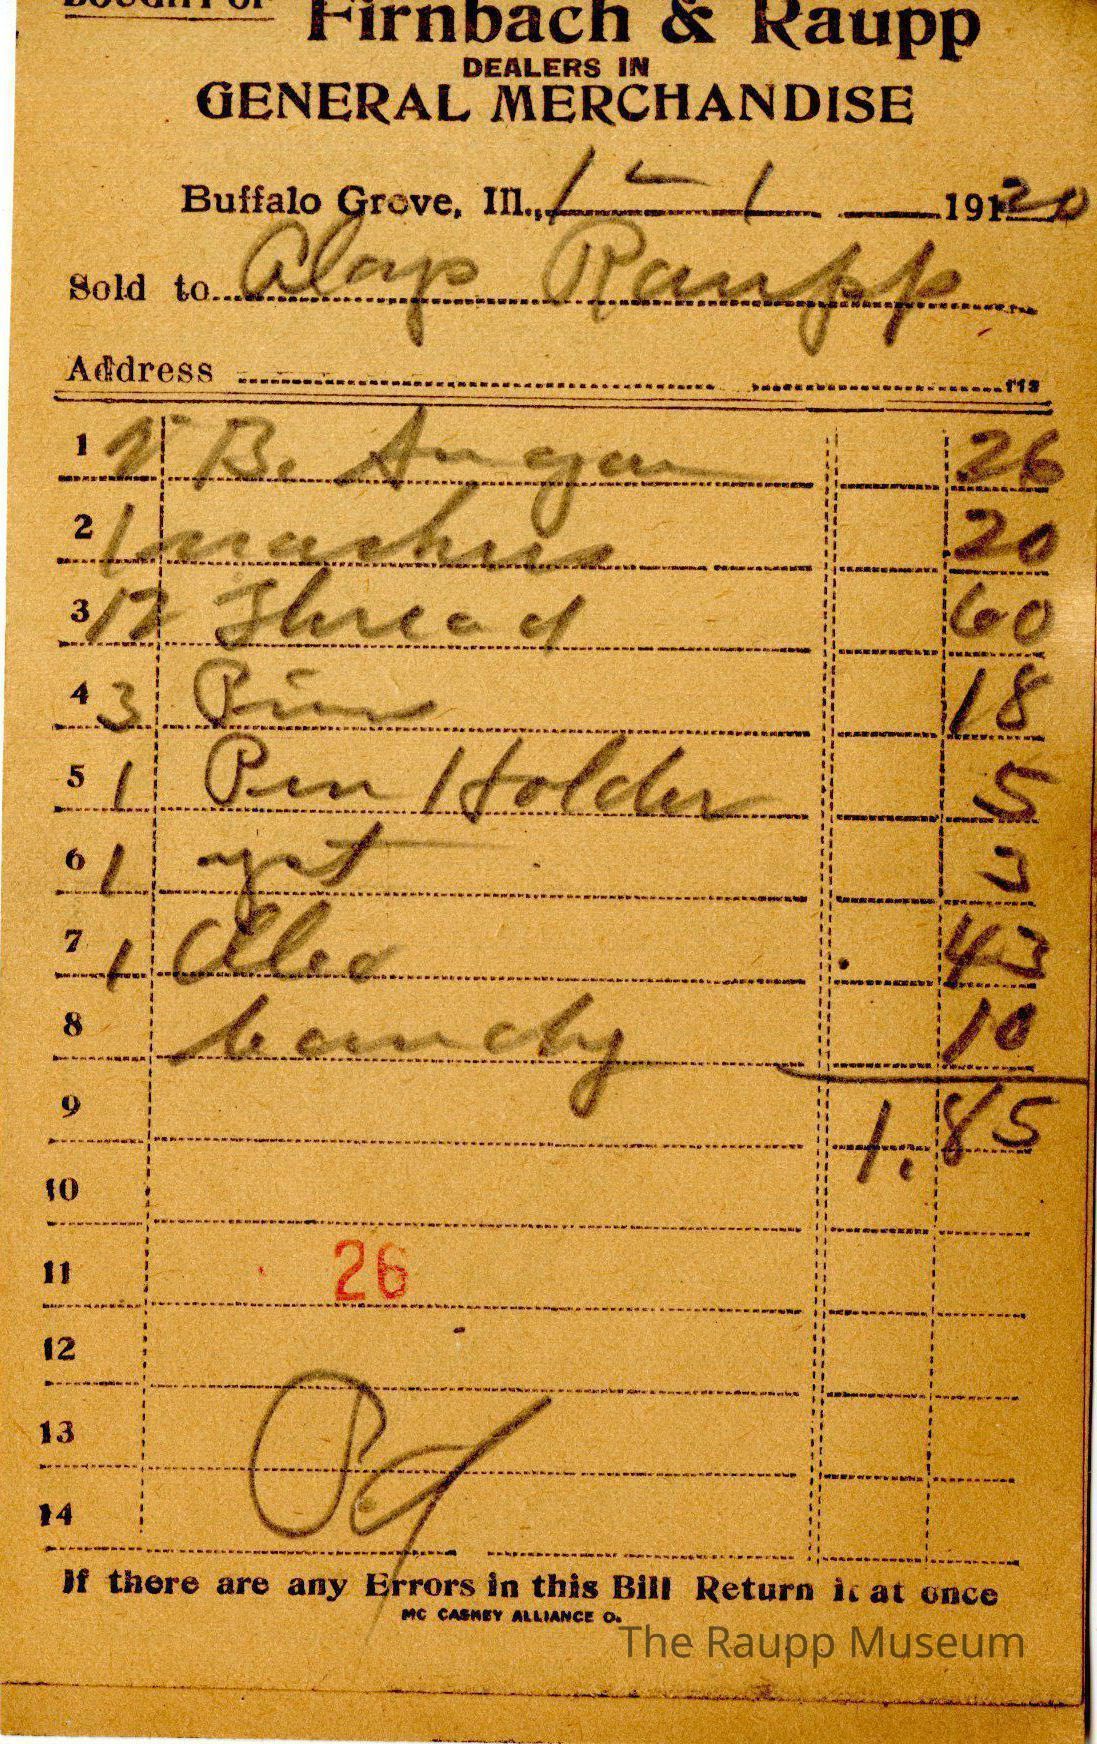 BOUGHT OF Firnbach & Raupp
DEALERS IN
GENERAL MERCHANDISE
Buffalo Grove, Ill., 1 - 1 191 20
Sold to Raupp
Address
1 B. Sugar 26
2 1 20
3 12 Thread 60
4 3 Pins 18
5 1 Pen Holder 5
6 1 yst 3
7 1 Oleo 43
8 Candy 10
9 1.85
10
11 26
12
13 Pd
14
If there are any Errors in this Bill Return it at once
MC CASKEY ALLIANCE O.
The Raupp Museum